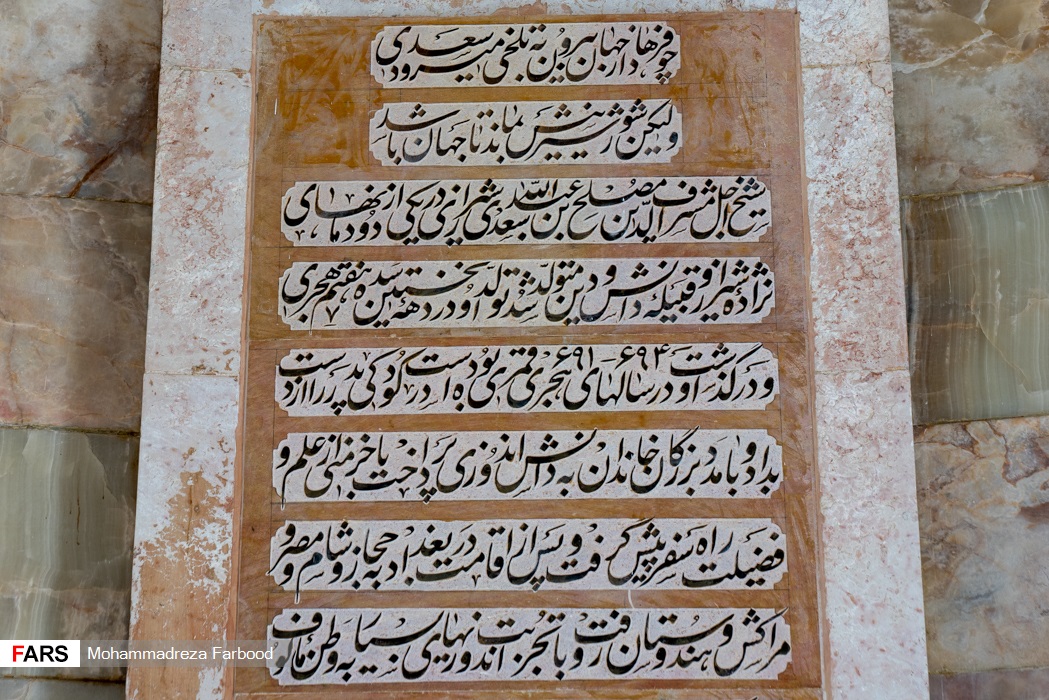 چو فرهاد از جهان بیرون به تلخی میرود سعدی
ولیکن شور شیرینش بماند تا جهان باشد
شیخ اجل مشرف الدین مصلح بن عبدالله سعدی شیرازی در یکی از دودمانهای
نژاده شیراز و قبیله دانش و دین متولد شد تولد او در دهه نخستین سده هفتم هجری
و درگذشت او در سالهای ۶۹۱ ۶۹۴ هجری قمری بوده است در کودکی پدر را از دست
بداد و با مدد بزرگان خاندن به دانش اندوزی پرداخت با خرمنی از علم و
فضیلت راه سفر پیش گرفت و پس از اقامت در بغداد به حجاز و شام و مصر و
مراکش و هندوستان رفت و با تجربت اندوزیهای بسیار به وطن مألوف
FARS Mohammadreza Farbood